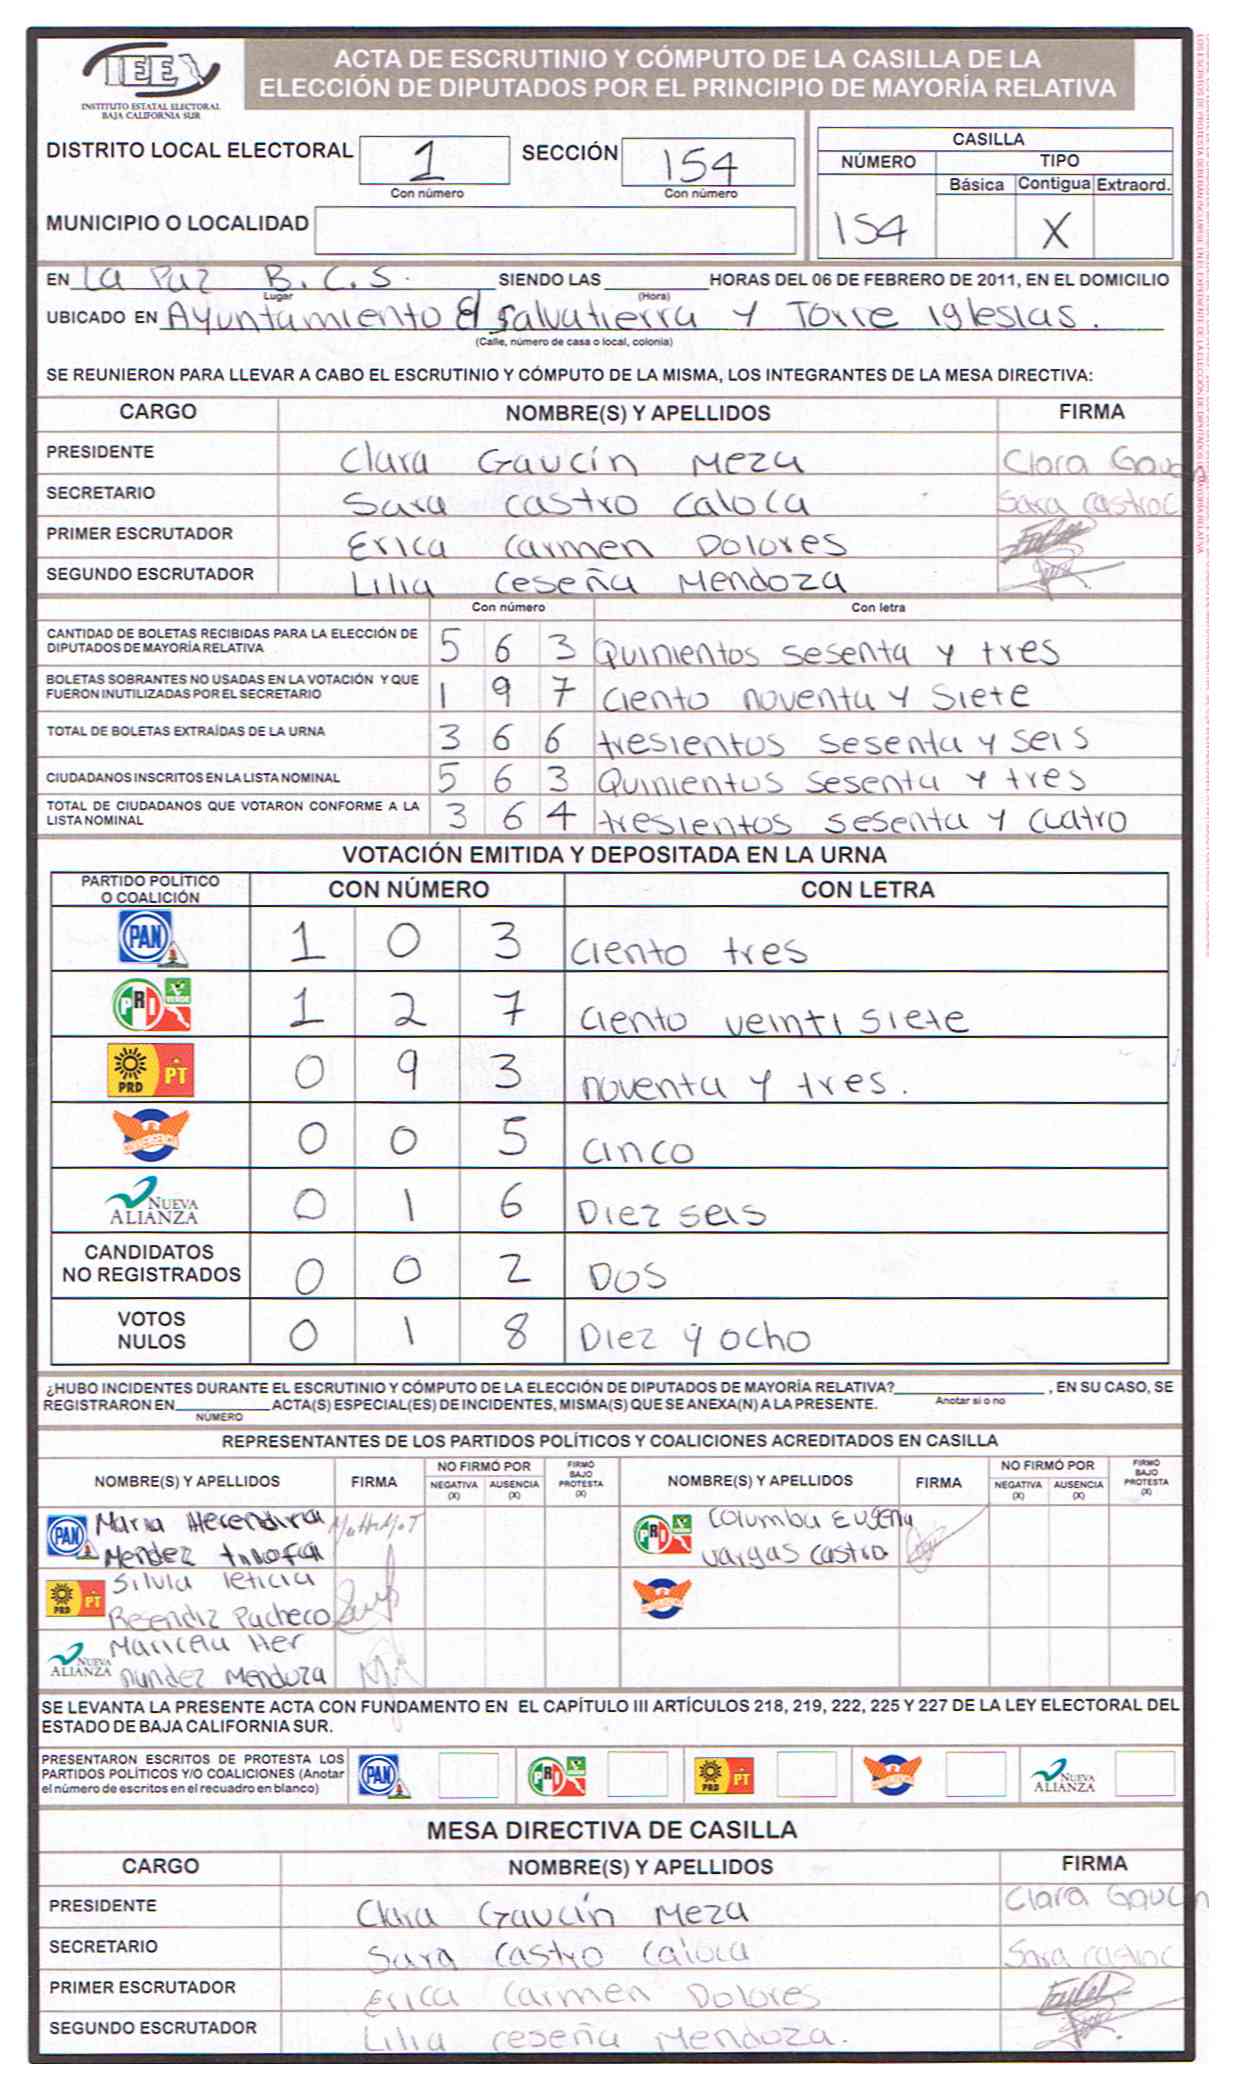 ACTA DE ESCRUTINIO Y CÓMPUTO DE LA CASILLA DE LA
ELECCIÓN DE DIPUTADOS POR EL PRINCIPIO DE MAYORÍA RELATIVA
IEE
INSTITUTO ESTATAL ELECTORAL
BAJA CALIFORNIA SUR
DISTRITO LOCAL ELECTORAL 1 SECCIÓN 154
Con número Con número
CASILLA
NÚMERO TIPO
Básica Contigua Extraord.
154 X
MUNICIPIO O LOCALIDAD
EN La Paz B.C.S. SIENDO LAS HORAS DEL 06 DE FEBRERO DE 2011, EN EL DOMICILIO
Lugar (Hora)
UBICADO EN Ayuntamiento E Salvatierra y Torre Iglesias.
(Calle, número de casa o local, colonia)
SE REUNIERON PARA LLEVAR A CABO EL ESCRUTINIO Y CÓMPUTO DE LA MISMA, LOS INTEGRANTES DE LA MESA DIRECTIVA:
CARGO NOMBRE(S) Y APELLIDOS FIRMA
PRESIDENTE Clara Gaucín Meza Clara Gaucín
SECRETARIO Sara Castro Caloca Sara Castro C
PRIMER ESCRUTADOR Erica Carmen Dolores
SEGUNDO ESCRUTADOR Lilia Ceseña Mendoza
Con número Con letra
CANTIDAD DE BOLETAS RECIBIDAS PARA LA ELECCIÓN DE
DIPUTADOS DE MAYORÍA RELATIVA 5 6 3 Quinientos sesenta y tres
BOLETAS SOBRANTES NO USADAS EN LA VOTACIÓN Y QUE
FUERON INUTILIZADAS POR EL SECRETARIO 1 9 7 Ciento noventa y Siete
TOTAL DE BOLETAS EXTRAÍDAS DE LA URNA 3 6 6 tresientos sesenta y seis
CIUDADANOS INSCRITOS EN LA LISTA NOMINAL 5 6 3 Quinientos sesenta y tres
TOTAL DE CIUDADANOS QUE VOTARON CONFORME A LA
LISTA NOMINAL 3 6 4 tresientos sesenta y cuatro
VOTACIÓN EMITIDA Y DEPOSITADA EN LA URNA
PARTIDO POLÍTICO
O COALICIÓN CON NÚMERO CON LETRA
PAN 1 0 3 ciento tres
PRI VERDE 1 2 7 ciento veinti siete
PRD PT 0 9 3 noventa y tres.
CONVERGENCIA 0 0 5 cinco
NUEVA ALIANZA 0 1 6 Diez seis
CANDIDATOS
NO REGISTRADOS 0 0 2 DOS
VOTOS
NULOS 0 1 8 Diez y ocho
¿HUBO INCIDENTES DURANTE EL ESCRUTINIO Y CÓMPUTO DE LA ELECCIÓN DE DIPUTADOS DE MAYORÍA RELATIVA? , EN SU CASO, SE
Anotar si o no
REGISTRARON EN ACTA(S) ESPECIAL(ES) DE INCIDENTES, MISMA(S) QUE SE ANEXA(N) A LA PRESENTE.
NÚMERO
REPRESENTANTES DE LOS PARTIDOS POLÍTICOS Y COALICIONES ACREDITADOS EN CASILLA
NOMBRE(S) Y APELLIDOS FIRMA NO FIRMÓ POR NEGATIVA (X) AUSENCIA (X) FIRMÓ BAJO PROTESTA (X) NOMBRE(S) Y APELLIDOS FIRMA NO FIRMÓ POR NEGATIVA (X) AUSENCIA (X) FIRMÓ BAJO PROTESTA (X)
PAN Maria Herendira
Mendez
PRI Columba Eugenia
Vargas Castro
PRD PT Silvia leticia
Resendiz Pacheco
NUEVA ALIANZA Maricela Her
nandez Mendoza
SE LEVANTA LA PRESENTE ACTA CON FUNDAMENTO EN EL CAPÍTULO III ARTÍCULOS 218, 219, 222, 225 Y 227 DE LA LEY ELECTORAL DEL
ESTADO DE BAJA CALIFORNIA SUR.
PRESENTARON ESCRITOS DE PROTESTA LOS
PARTIDOS POLÍTICOS Y/O COALICIONES (Anotar
el número de escritos en el recuadro en blanco)
PAN PRI PRD PT NUEVA ALIANZA
MESA DIRECTIVA DE CASILLA
CARGO NOMBRE(S) Y APELLIDOS FIRMA
PRESIDENTE Clara Gaucín Meza Clara Gaucín
SECRETARIO Sara Castro Caloca Sara Castro C
PRIMER ESCRUTADOR Erica Carmen Dolores
SEGUNDO ESCRUTADOR Lilia Ceseña Mendoza.